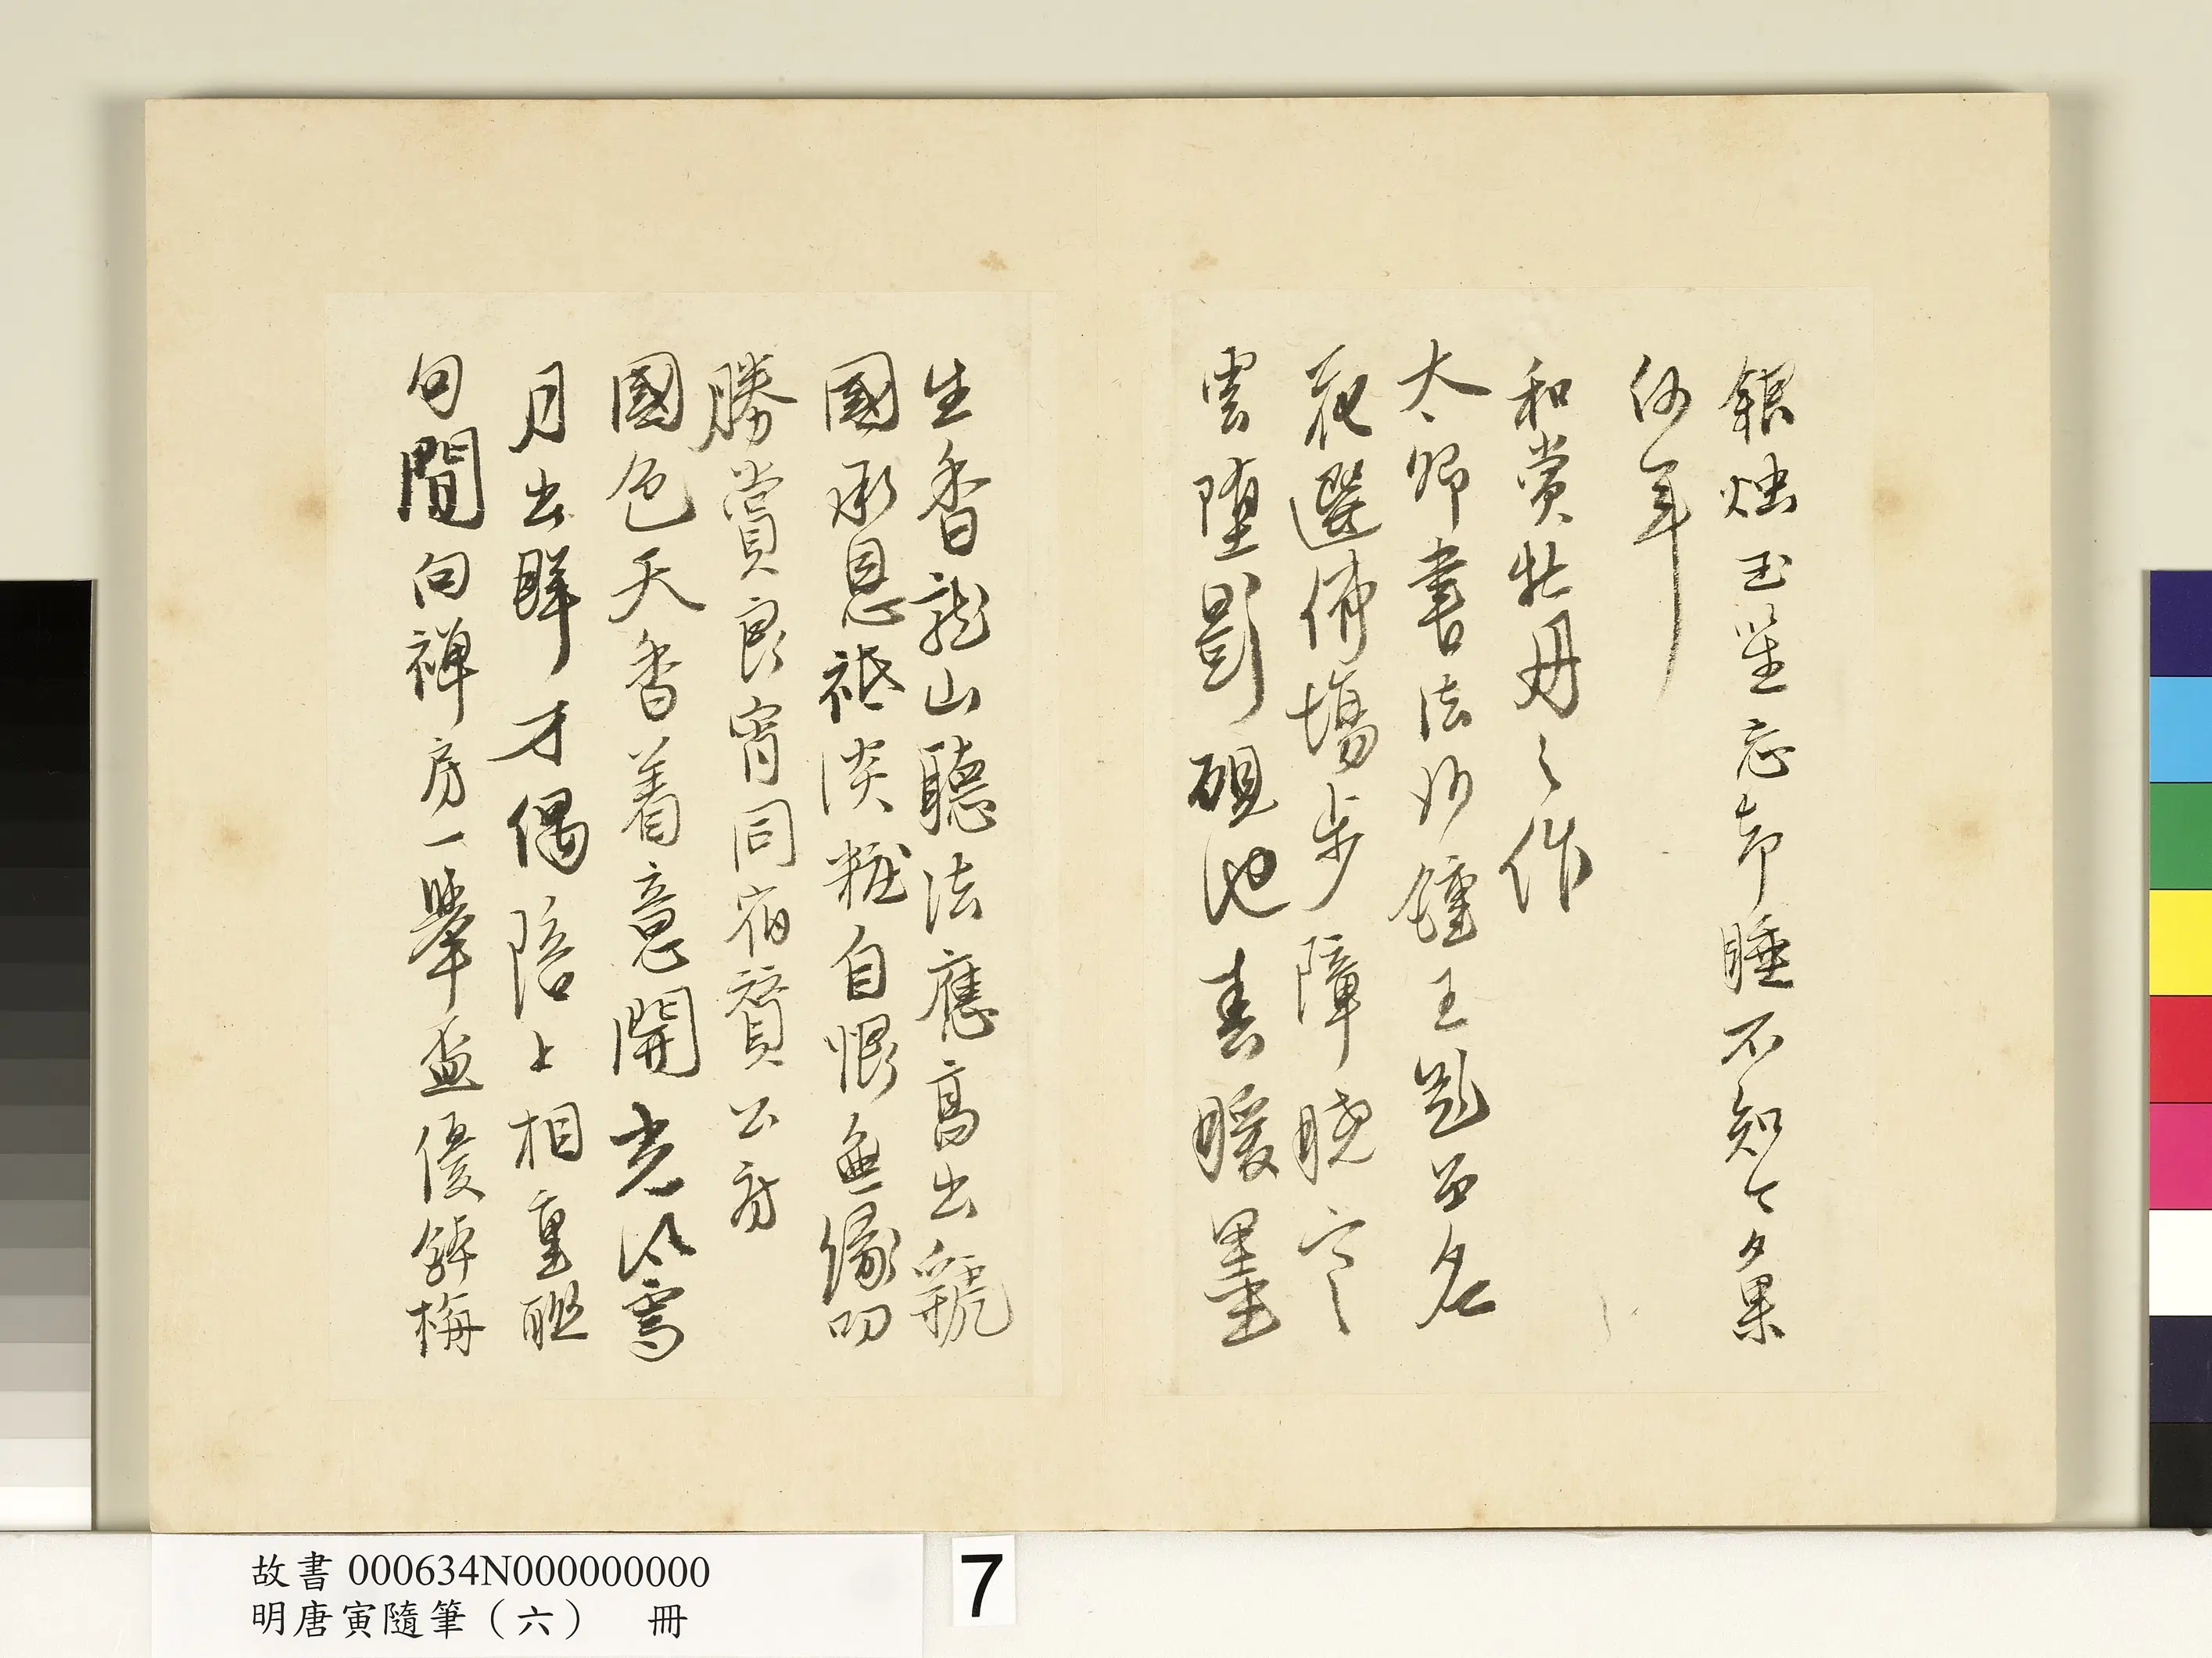 銀燭玉筆忘却睡不知今夕果
何年
和賞牡丹之作
太師書法沙鍾王題品名
花選佛場步障曉
雲堕影硯池春暖墨
生香龍山聽法應高出虢
國承恩祗淡粧自恨無緣叨
勝賞良宵同宿贊公房
國色天香着意開光風霽
月出群才偶陪上相重聯
句間向禪房一擧盃優鉢梅
故書 000634N000000000
明唐寅隨筆（六） 冊
7